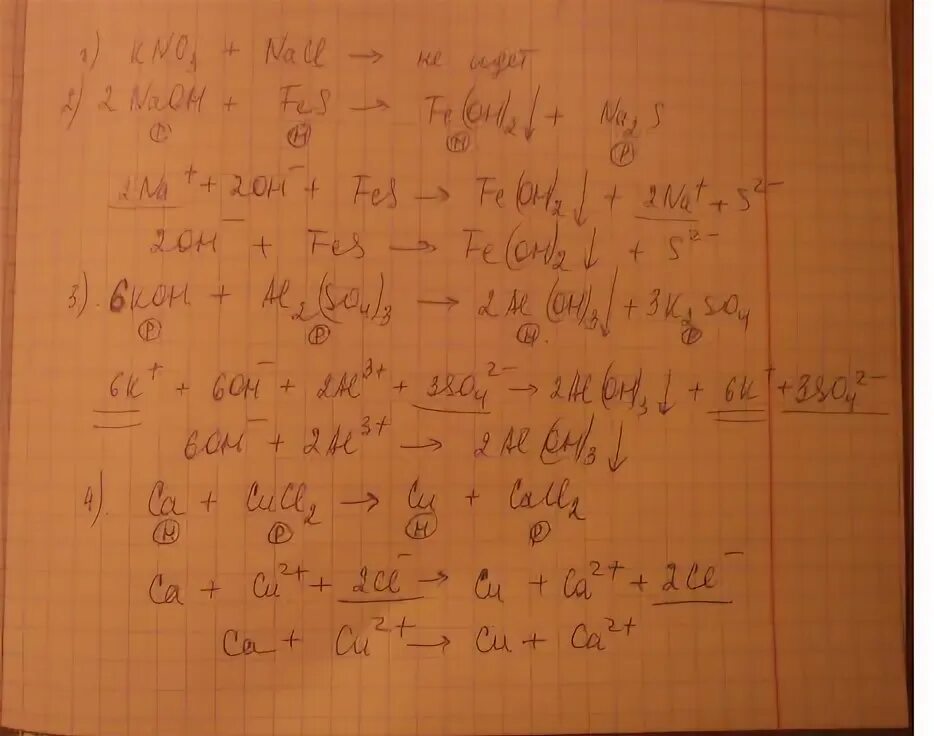 1) KNO₃ + NaCl → не идет
2) 2NaOH + FeS → Fe(OH)₂↓ + Na₂S
Р Н Н Р
2Na⁺ + 2OH⁻ + FeS → Fe(OH)₂↓ + 2Na⁺ + S²⁻
2OH⁻ + FeS → Fe(OH)₂↓ + S²⁻
3). 6KOH + Al₂(SO₄)₃ → 2Al(OH)₃↓ + 3K₂SO₄
Р Р Н. Р
6K⁺ + 6OH⁻ + 2Al³⁺ + 3SO₄²⁻ → 2Al(OH)₃↓ + 6K⁺ + 3SO₄²⁻
6OH⁻ + 2Al³⁺ → 2Al(OH)₃↓
4). Ca + CuCl₂ → Cu + CaCl₂
Н Р Н Р
Ca + Cu²⁺ + 2Cl⁻ → Cu + Ca²⁺ + 2Cl⁻
Ca + Cu²⁺ → Cu + Ca²⁺